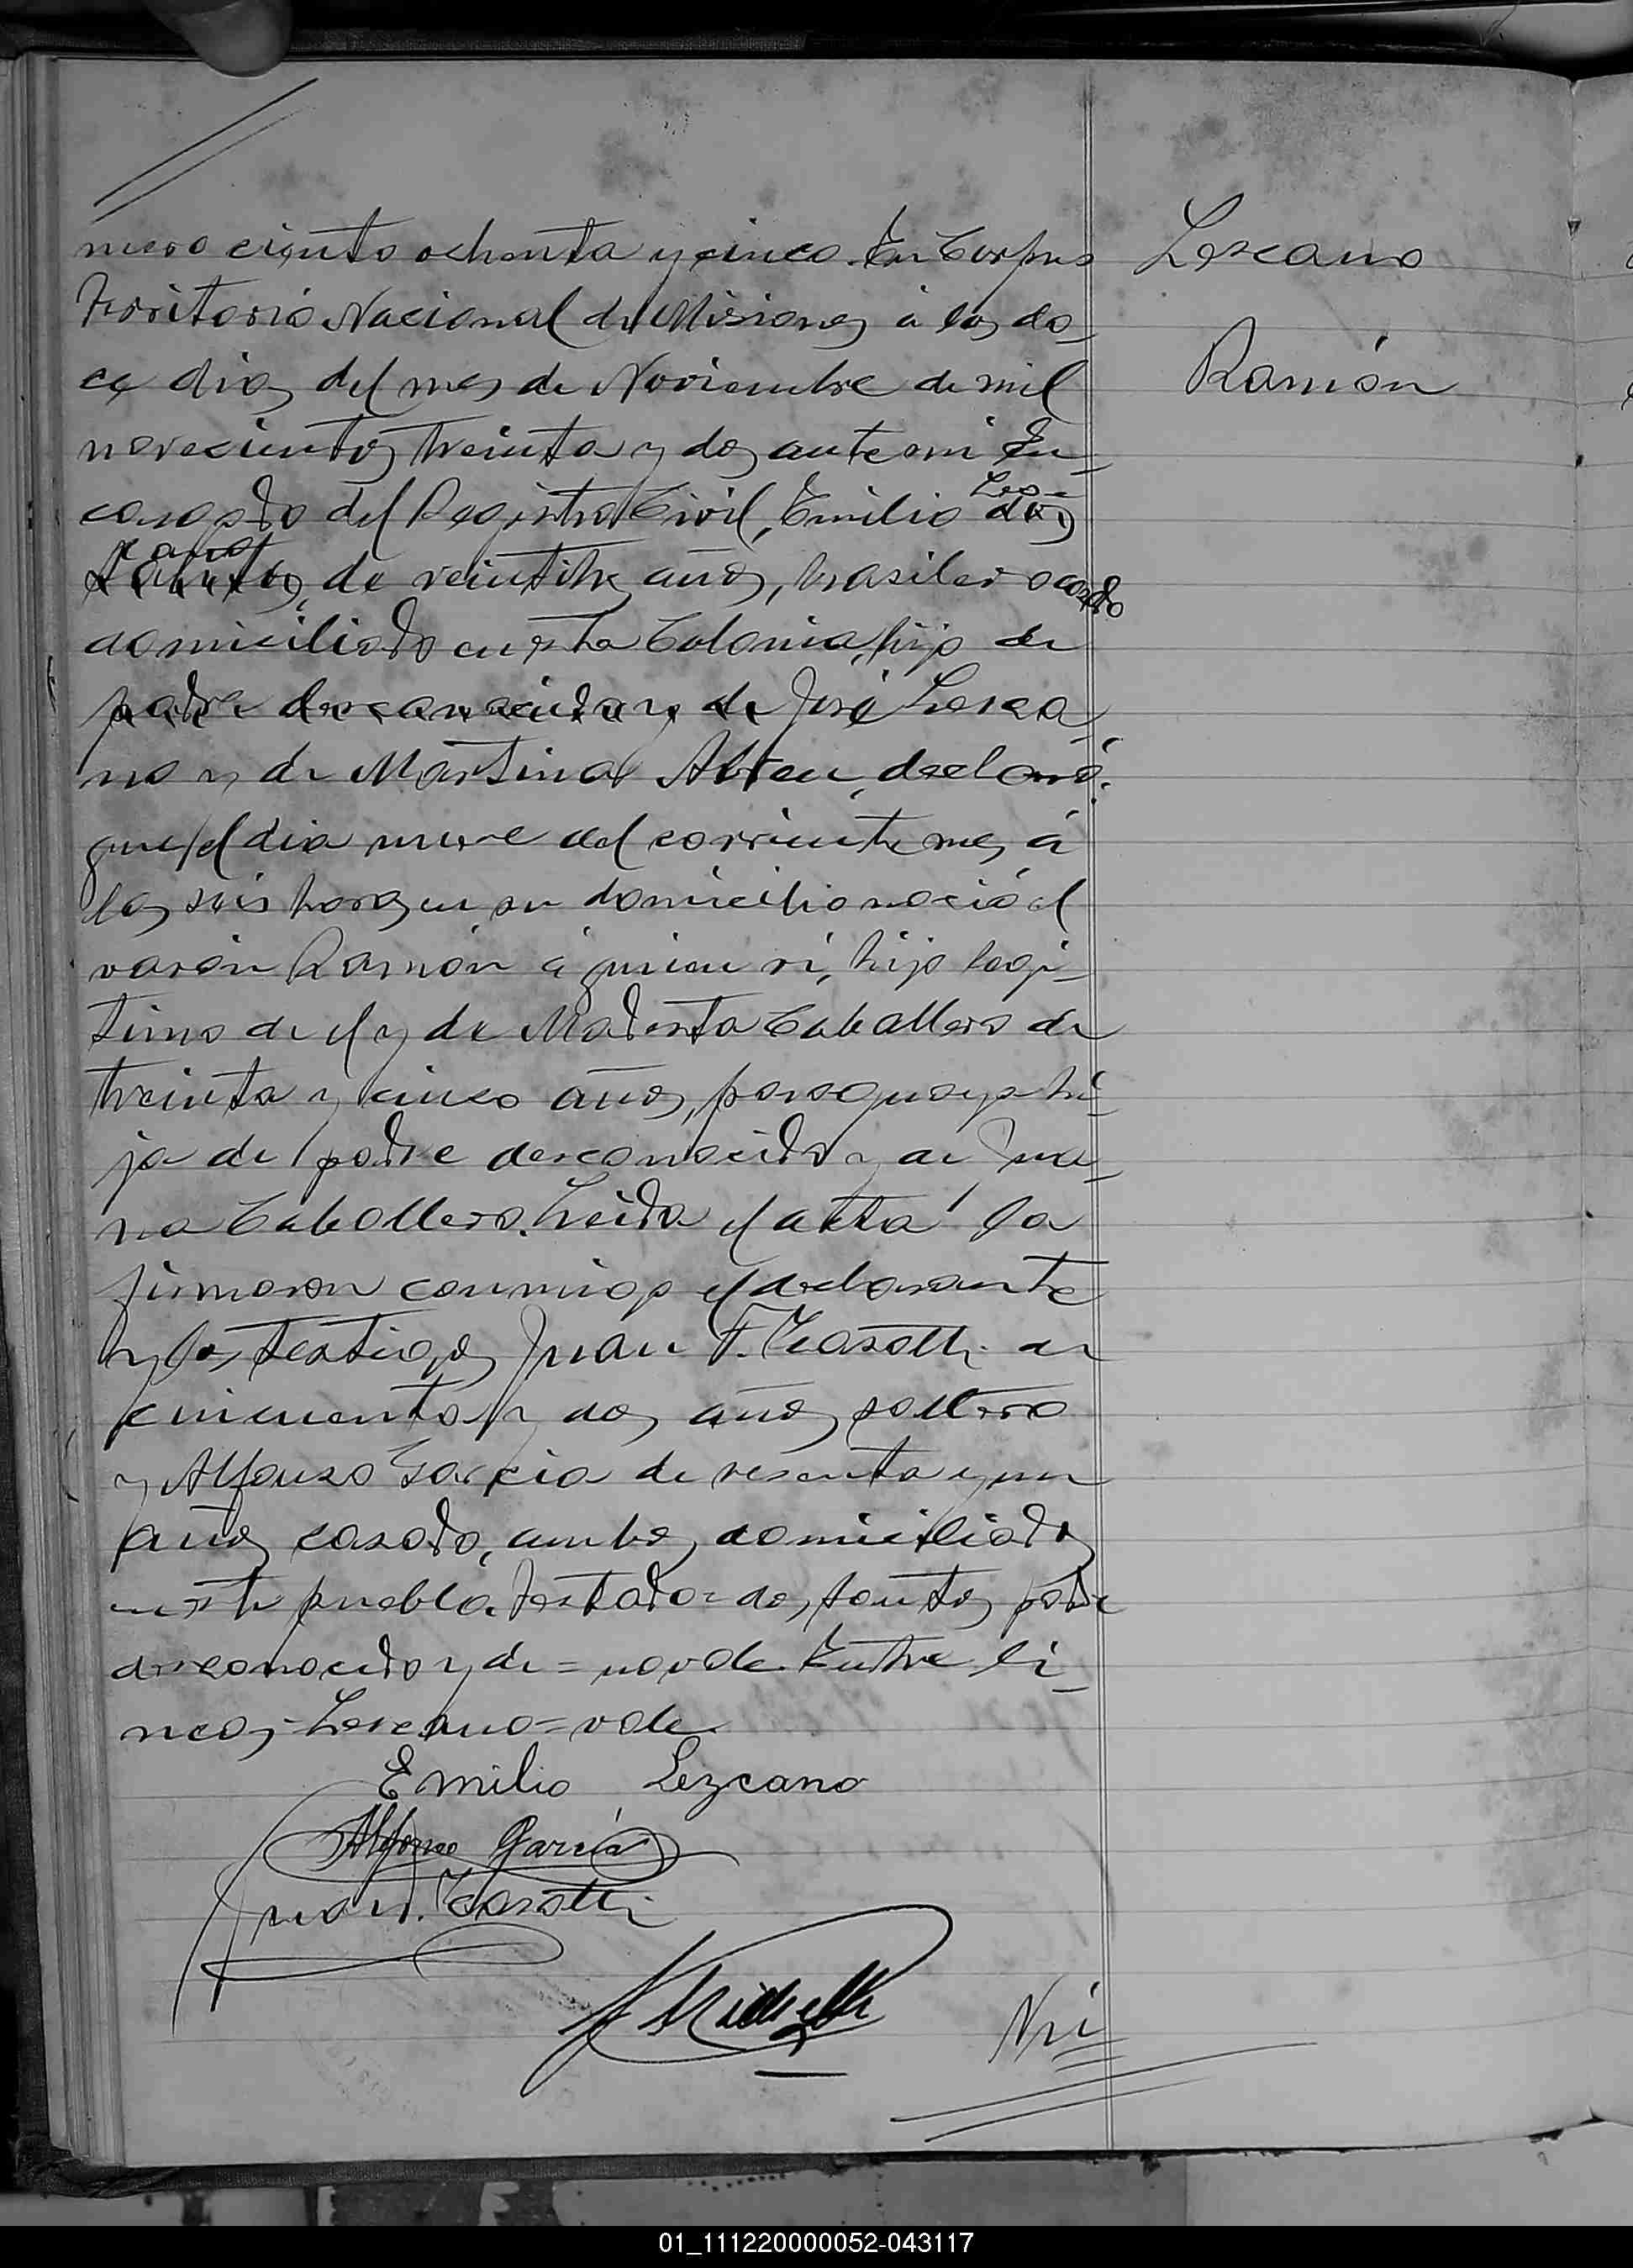 mero ciento ochenta y cinco. En Corpus
Territorio Nacional de Misiones á los do_
ce dias del mes de Noviembre de mil
novecientos treinta y dos ante mi En_
cargado del Registro Civil, Emilio dos
Les_
Santos, de veintitres años, brasilero casado
cano
domiciliado en esta Colonia, hijo de
padre desconocido y de José Lesca_
no y de Martina Abreu, declaró:
que el dia nueve del corriente mes á
las seis horas en su domicilio nació el
varón Ramón á quien vi, hijo legi_
timo de el y de Modesta Caballero de
treinta y cinco años, paraguaya hi_
ja de padre desconocido y de Jua_
na Caballero. Leida el acta la
firmaron conmigo el declarante
y los testigos Juan F. de
cincuenta y dos años soltero
y Alfonso Garcia de sesenta y un
años casado, ambos domiciliados
en este pueblo. Testado=dos, Santos, padre
desconocido y de=no vale. Entre li_
neas-Lescano=vale.
Emilio Lezcano
Alfonso García
Juan F.
Lescano
Ramón
01_111220000052-043117